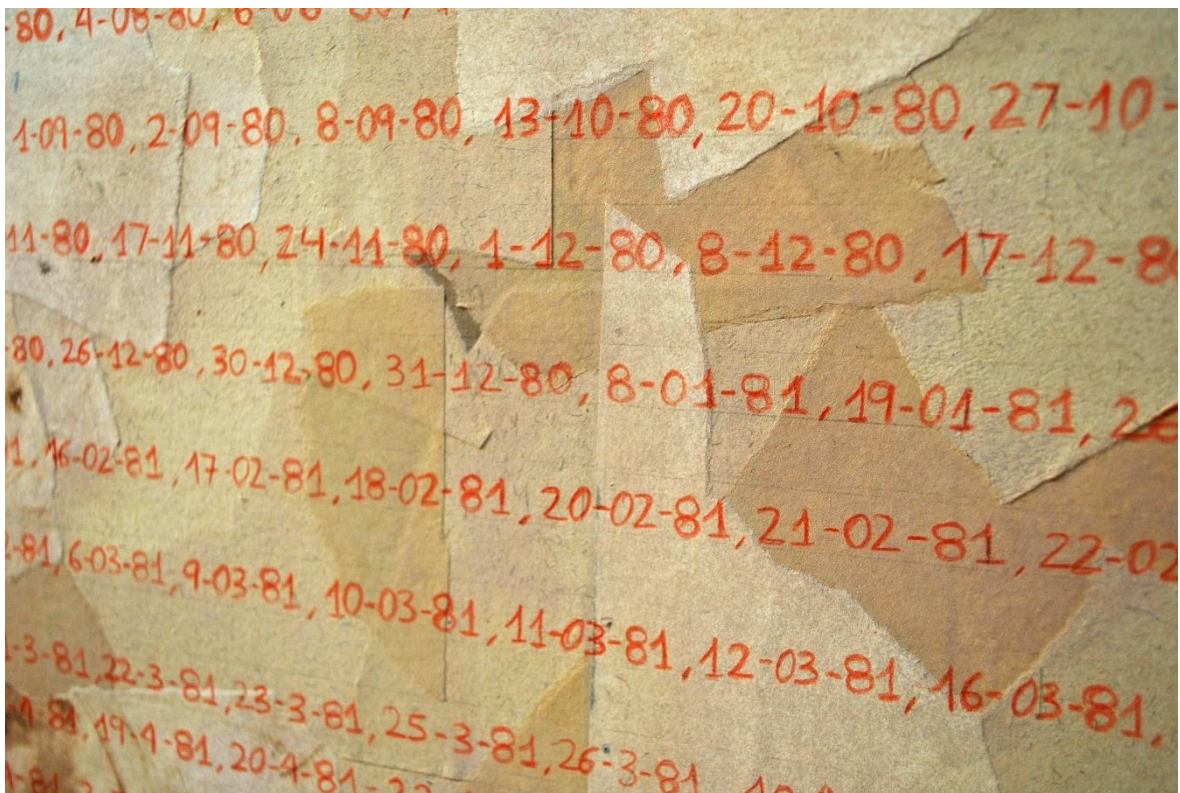 80, 4-08-80,
1-09-80, 2-09-80, 8-09-80, 13-10-80, 20-10-80, 27-10-
11-80, 17-11-80, 24-11-80, 1-12-80, 8-12-80, 17-12-80
80, 26-12-80, 30-12-80, 31-12-80, 8-01-81, 19-01-81,
16-02-81, 17-02-81, 18-02-81, 20-02-81, 21-02-81, 22-02
-81, 6-03-81, 9-03-81, 10-03-81, 11-03-81, 12-03-81, 16-03-81,
-3-81, 22-3-81, 23-3-81, 25-3-81, 26-3-81
-4-81, 19-4-81, 20-4-81